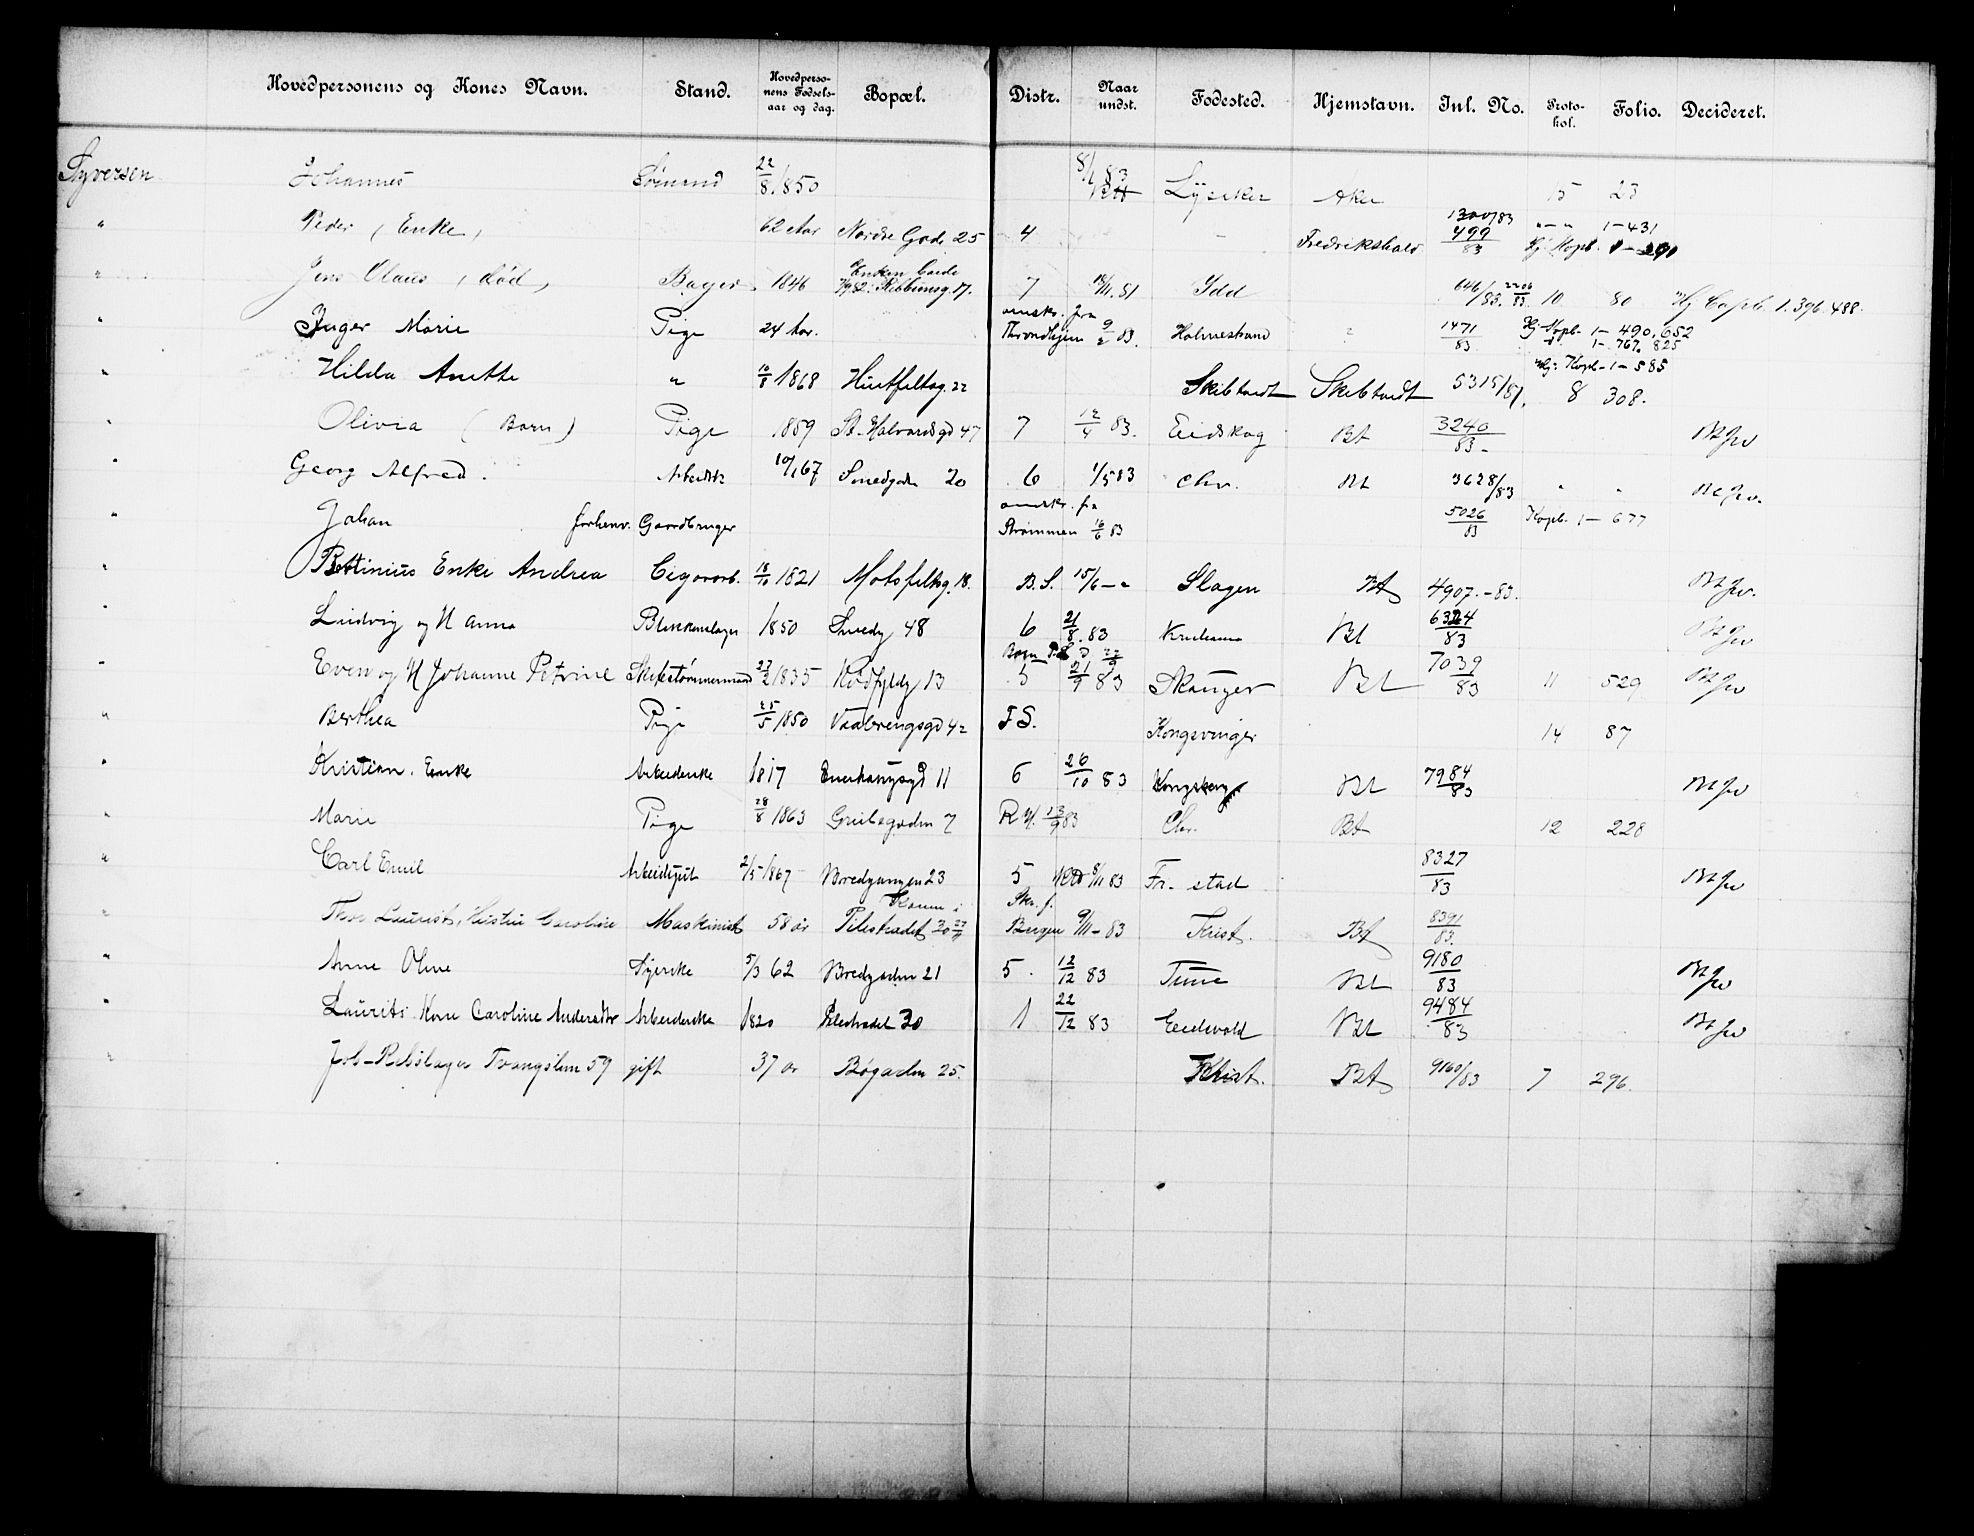 Hovedpersonens og Kones Navn. Stand. Hovedpersonens Fødselsaar og dag. Bopæl. Distr. Naar undst. Fødested. Hjemstavn. Inl. No. Protokol. Folio. Decideret.
Johannes 22/8 1850 8/1 83 Lysaker Aker 15 23
" Peder (Enke) 62 Aar Nordre Gade 25 4 Fredrikshald 1300/83 499/83 " " 1-431 Hj. Kopb.
" Jens Olaus, død, Bager 1846 Enken 7 51 Idd 646/83 2206/83 10 80 Hj Copb. 1. 396. 488.
" Inger Marie Pige 24 Aar. omskr. fra Throndhjem 9/2 83. Holmestrand " 1471/83 Hj. Kopb. 1- 490, 652 1- 767. 825
" Hilda Anette " 10/8 1868 Huitfeltsg. 22 Skibtvedt Skibtvedt 5315/81. Hj: Kopb. 1-585 8 308.
" Olivia (Barn) Pige 1859 St. Halvardsgd 47 7 12/4 83. Eidskog Bt 3240/83 Bt Jw
" Georg Alfred. Arbeider 10/1 67 Smedgaden 20 6 1/5 83 Chr. Bt 3628/83 " " Bt Jw.
" Johan forhenv. Gaardbruger omskr. fra Strømmen 16/6 83 5026/83 Kopb. 1- 677
" Bettinius Enke Andrea Cigararb. 18/10 1821 Motsfeltsg. 18. B.S. 15/6 - " Slagen Bt 4907.-83. Bt Jw.
" Ludvig og H Anna Blikkenslager 1850 Smedg 48 6 21/8 83 Bt 6324/83 Bt Jw
" Even og H Johanne Petrine Skibstømmermand 27/2 1835 Rødfyldg 13 5 21/9 83 Skauger Bt 7039/83 11 529 Bt Jw
" Berthea Pige 25/5 1850 Vaalerengsgd 42 F S. Kongsvinger 14 87
" Kristian. Enke Arbeiderske 1817 Enerhaugsgd 11 6 26/10 83 Kongsberg Bt 7984/83 Bt Jw
" Marie Pige 28/8 1863 Grubegaden 7 R.H. 13/9 83 Chr. Bt 12 228
" Carl Emil Arbeidsgut 2/5 1867 Bredgangen 23 5 8/11 83 Fr. stad 8327/83 Bt Jw
" Thor Laurits, Hustru Caroline Maskinist 58 år Pilestrædet 30 Skr. f. Bergen 9/11 - 83 Krist. Bt 8391/83.
" Anne Oline Syerske 5/3 62 Bredgaden 21 5. 12/12 83 Tune Bt 9180/83 Bt Jw
" Laurits Kone Caroline Andersdtr Arbeiderske 1820 Pilestrædet 30 1 22/12 83 Eidsvold Bt 9484/83 Bt Jw
" Job - Rebslager Tvangslem 59 gift 37 år Bøgaden 25. Krist. Bt 9160/83 7 296.